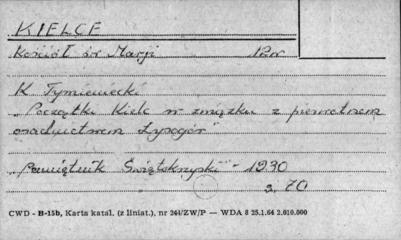 KIELCE
Kościół św Marji
K Tymieniecki
„Początki Kielc w związku z pierwotnem
osadnictwem Łysogór"
„Pamiętnik Świętokrzyski" - 1930
s. 70
CWD - B-15b, Karta katal. (z liniat.), nr 244/ZW/P — WDA 8 25.1.64 2.010.000